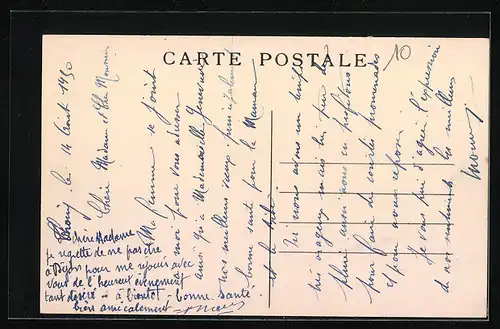 CARTE POSTALE
10
le 14 Août 1930
Chère Madame et Cher Monsieur
Ma femme se joint
à moi pour vous adresser
ainsi qu'à Mademoiselle
nos meilleurs vœux
bonne santé pour la Maman
et le bébé.
Ici nous avons un temps
très orageux mais les fins de
aussi nous en profitons
pour faire de courtes promenades
et pour nous reposer.
Je vous prie d'agréer l'expression
de nos sentiments les meilleurs
Chère Madame,
je regrette de ne pas être
à Dijon pour me réjouir avec
vous de l'heureux événement
tant désiré - à bientôt - bonne santé
bien amicalement